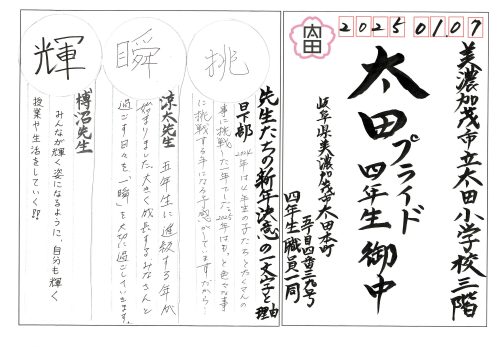 2025 01.07
太田
美濃加茂市立太田小学校三階
太田プライド
四年生 御中
岐阜県美濃加茂市太田本町
五丁目四番三九号
四年生職員一同
先生たちの新年決意の一文字と理由
挑
日下部
2024年は4年生の子たちとたくさんの
事に挑戦した一年でした。2025年はもっと色々な事
に挑戦する年になる予感がしています。だから…
瞬
涼太先生
五年生に進級する年が
始まりました。大きく成長するみなさんと
過ごす日々を「一瞬」を大切に過ごしていきます。
輝
博沼先生
みんなが輝く姿になるように、自分も輝く
授業や生活をしていく!!